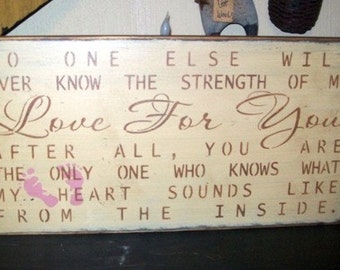 O ONE ELSE WIL
VER KNOW THE STRENGTH OF M
Love For You
AFTER ALL, YOU ARE
THE ONLY ONE WHO KNOWS WHAT
MY HEART SOUNDS LIKE
FROM THE INSIDE.